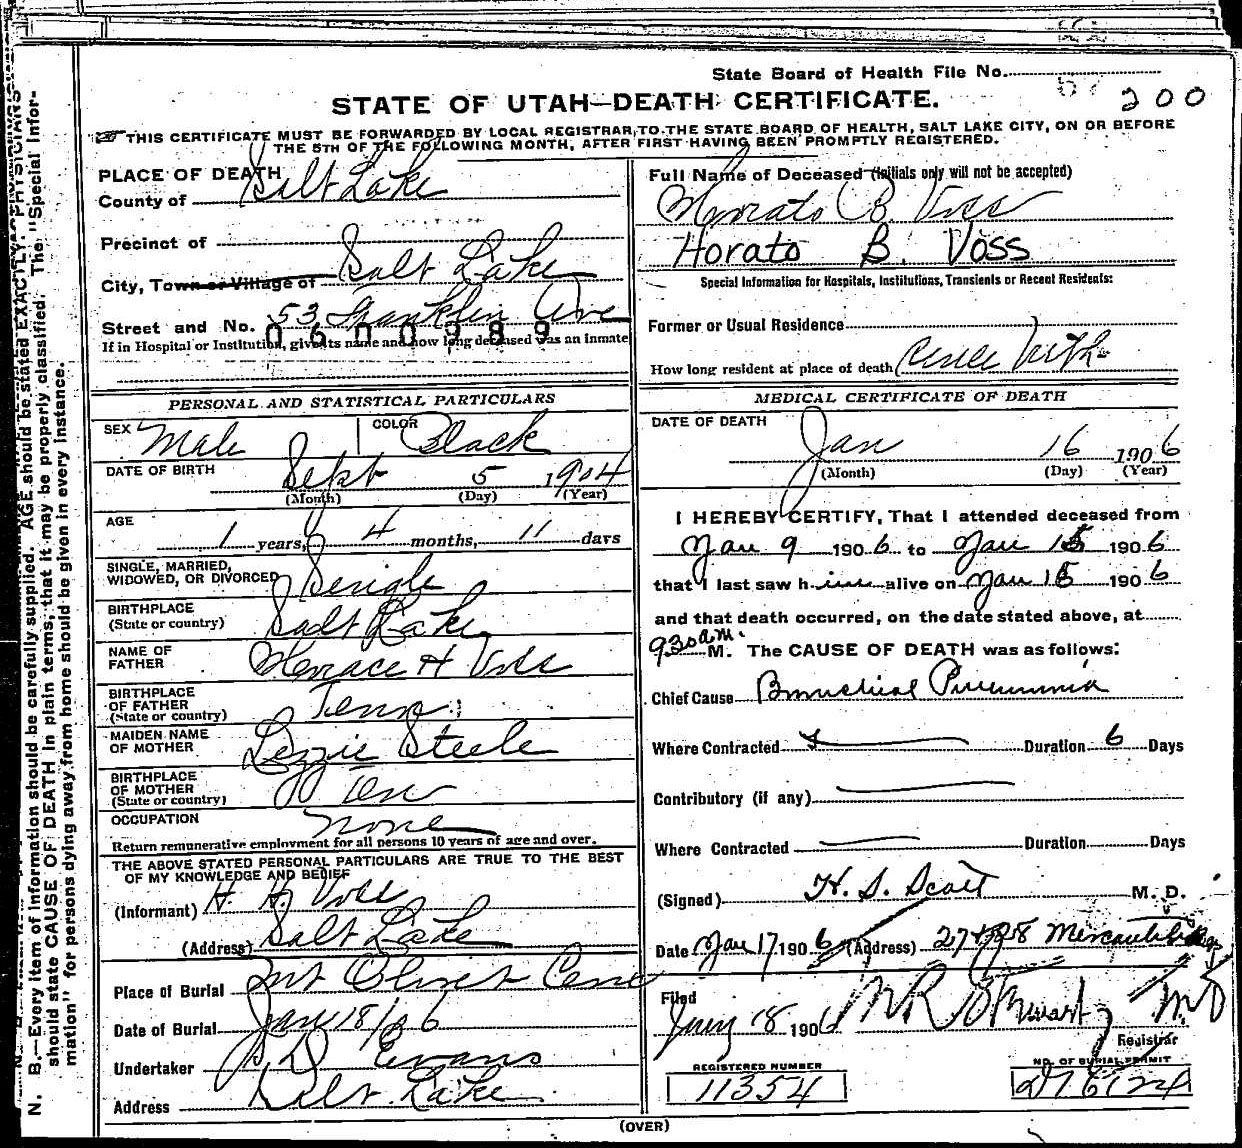 State Board of Health File No.
200
STATE OF UTAH—DEATH CERTIFICATE.
THIS CERTIFICATE MUST BE FORWARDED BY LOCAL REGISTRAR TO THE STATE BOARD OF HEALTH, SALT LAKE CITY, ON OR BEFORE
THE 5TH OF THE FOLLOWING MONTH, AFTER FIRST HAVING BEEN PROMPTLY REGISTERED.
PLACE OF DEATH
County of Salt Lake
Precinct of
City, Town or Village of Salt Lake
Street and No. 53 Franklin Ave
0600989
If in Hospital or Institution, give its name and how long deceased was an inmate
PERSONAL AND STATISTICAL PARTICULARS
SEX Male COLOR Black
DATE OF BIRTH Sept 5 1904
(Month) (Day) (Year)
AGE
1 years, 4 months, 11 days
SINGLE, MARRIED,
WIDOWED, OR DIVORCED Single
BIRTHPLACE
(State or country) Salt Lake
NAME OF
FATHER Horace H Voss
BIRTHPLACE
OF FATHER
(State or country) Tenn
MAIDEN NAME
OF MOTHER Lizzie Steele
BIRTHPLACE
OF MOTHER
(State or country)
OCCUPATION none
Return remunerative employment for all persons 10 years of age and over.
THE ABOVE STATED PERSONAL PARTICULARS ARE TRUE TO THE BEST
OF MY KNOWLEDGE AND BELIEF
(Informant) H. H. Voss
(Address) Salt Lake
Place of Burial Mt Olivet Cem
Date of Burial Jany 18/06
Undertaker Evans
Address Salt Lake
Full Name of Deceased (Initials only will not be accepted)
Horato B. Voss
Horato B. Voss
Special Information for Hospitals, Institutions, Transients or Recent Residents:
Former or Usual Residence
How long resident at place of death since birth
MEDICAL CERTIFICATE OF DEATH
DATE OF DEATH
Jan 16 1906
(Month) (Day) (Year)
I HEREBY CERTIFY, That I attended deceased from
Jan 9 1906 to Jan 15 1906
that I last saw him alive on Jan 15 1906
and that death occurred, on the date stated above, at
930 a.m. M. The CAUSE OF DEATH was as follows:
Chief Cause Bronchial Pneumonia
Where Contracted Duration 6 Days
Contributory (if any)
Where Contracted Duration Days
(Signed) H. S. Scott M. D.
Date Jan 17 1906 (Address) Mercantile
Filed
Jany 18 1906 Stewart M.D
Registrar
REGISTERED NUMBER
11354
NO. OF BURIAL PERMIT
(OVER)
N. B.—Every item of information should be carefully supplied. AGE should be stated EXACTLY. PHYSICIANS
should state CAUSE OF DEATH in plain terms, that it may be properly classified. The "Special Infor-
mation" for persons dying away from home should be given in every instance.